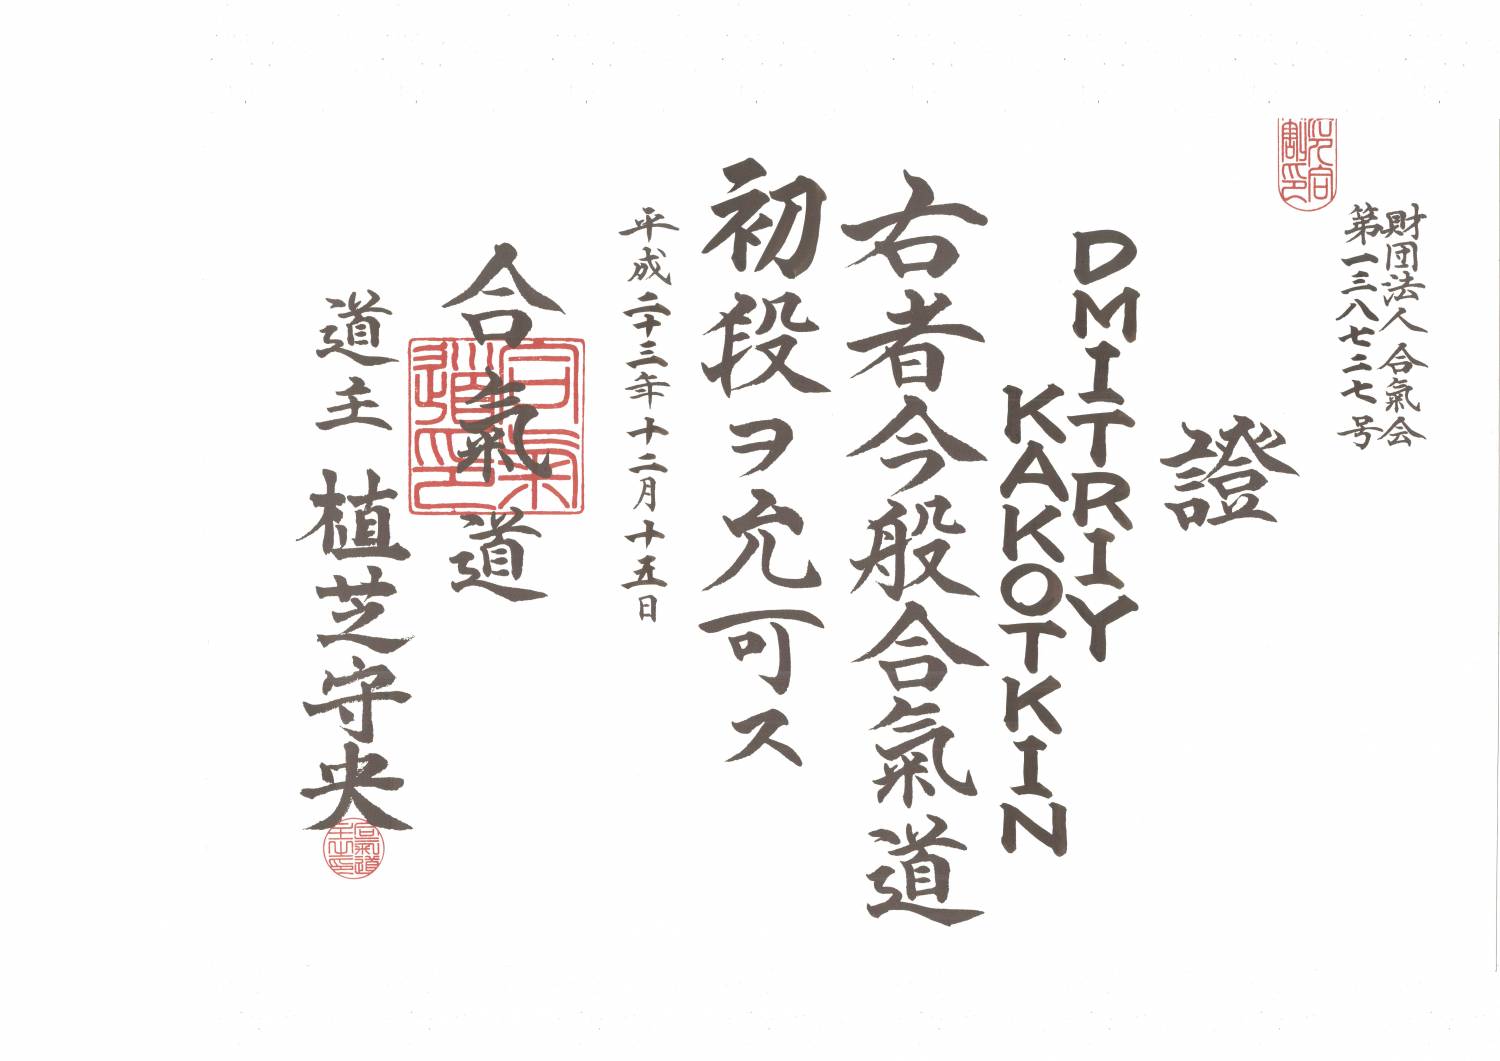 財団法人合氣会
第一三八七二七号
證
DMITRIY
KAKOTKIN
右者今般合氣道
初段ヲ允可ス
平成二十三年十二月十五日
合氣道
道主 植芝守央
合氣道印